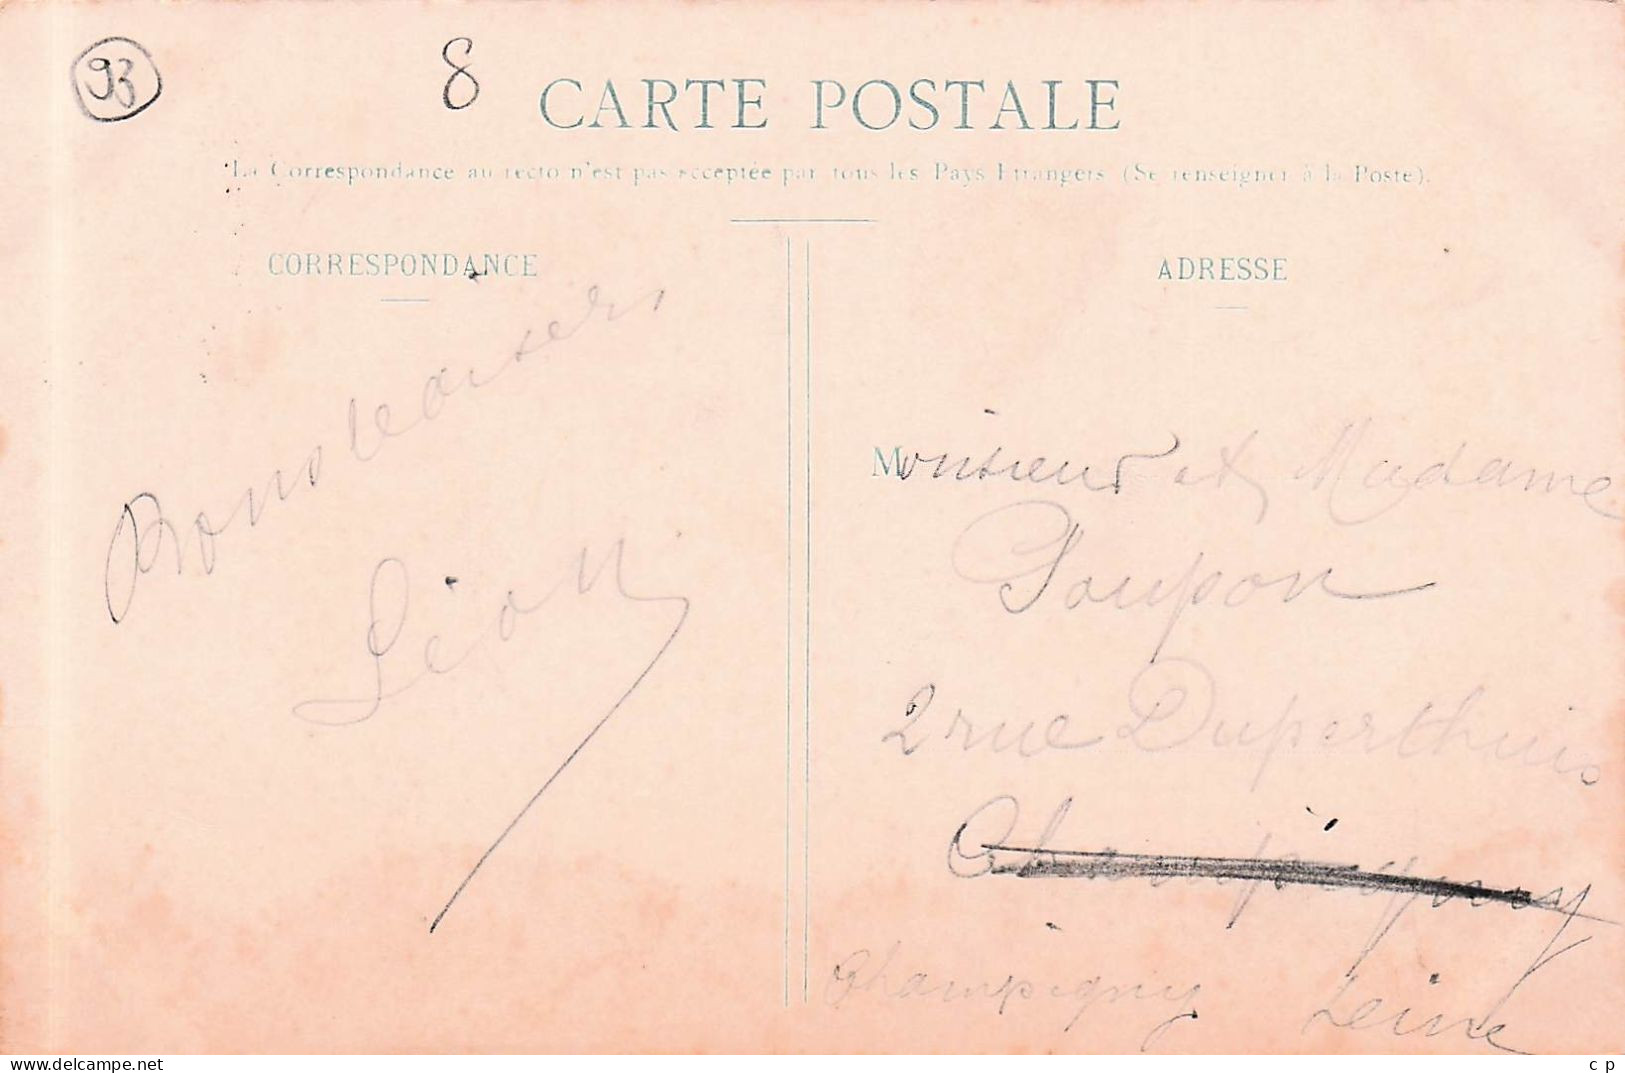 93
8
CARTE POSTALE
La Correspondance au recto n'est pas acceptée par tous les Pays Etrangers (Se renseigner à la Poste).
CORRESPONDANCE
Bons baisers
Léon
ADRESSE
Monsieur et Madame
Poupon
2 rue Duperthuis
Champigny
Champigny Seine
c p